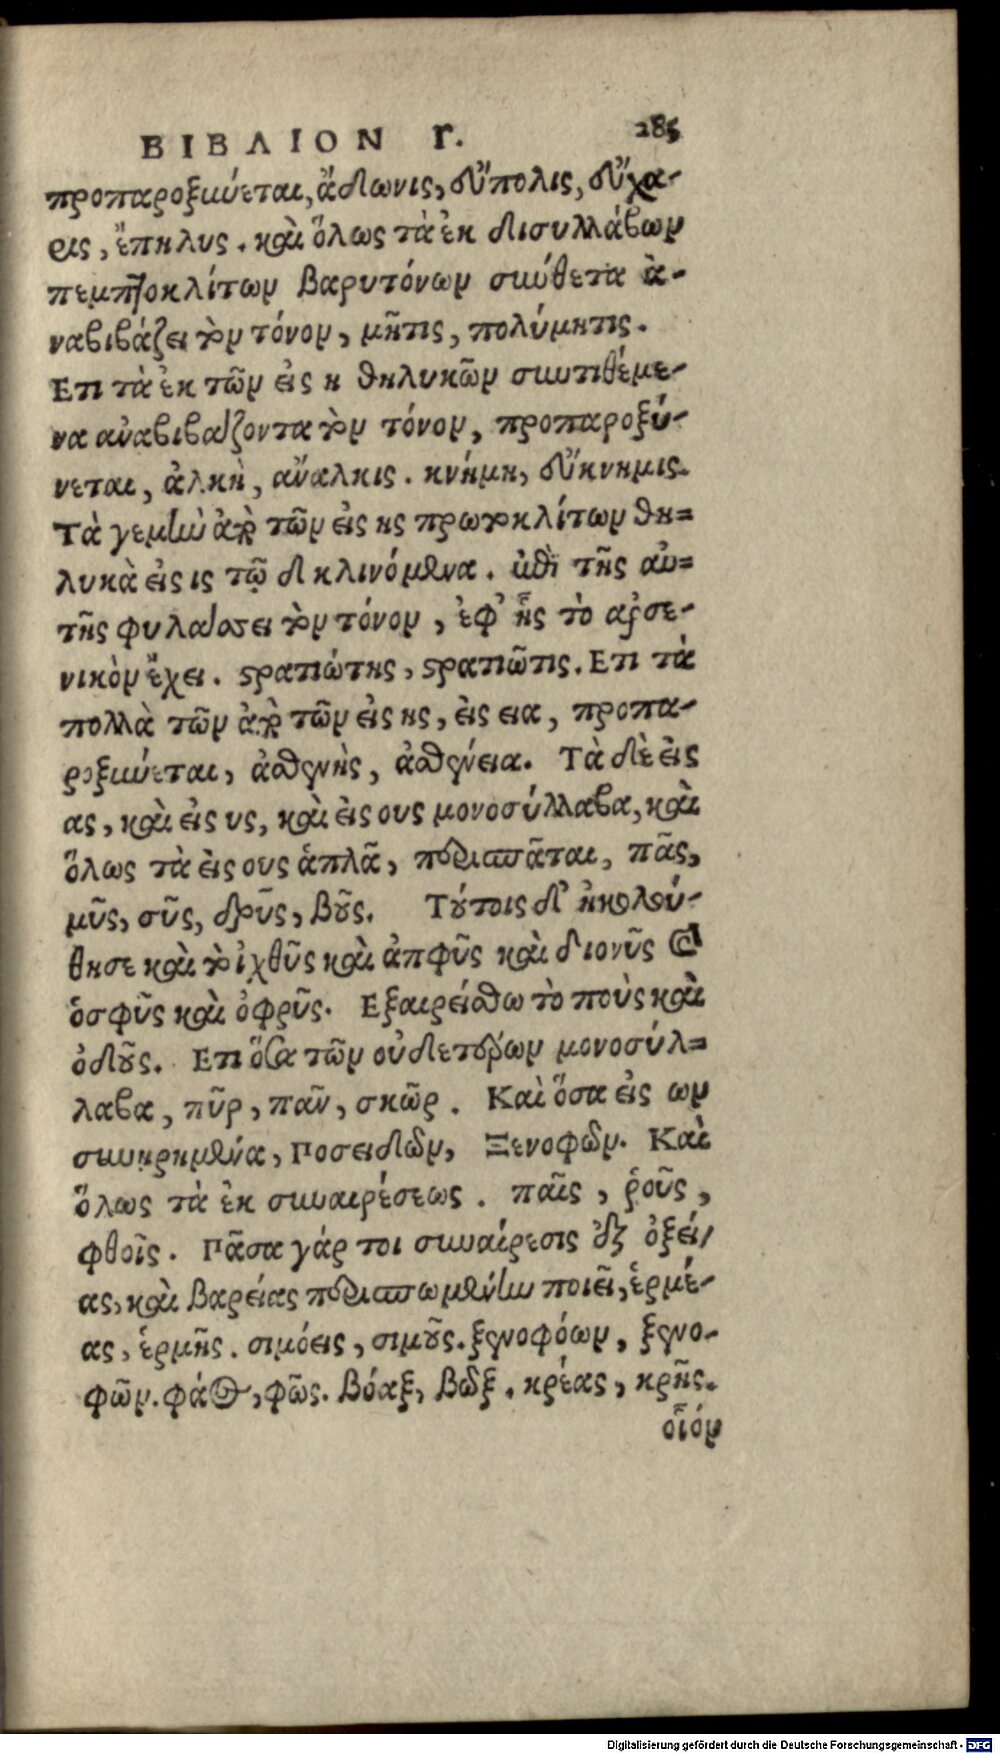 ΒΙΒΛΙΟΝ Γ. 285
προπαροξωύεται, ἄδωνις, εὔπολις, εὔχα-
ρις, ἔπηλυς. καὶ ὅλως τὰ ἐκ δισυλλάβων
πεμπτοκλίτων βαρυτόνων σωύθετα ἀ-
ναβιβάζει τὸν τόνον, μῆτις, πολύμητις.
Ετι τὰ ἐκ τῶν εἰς η θηλυκῶν σωτιθέμε-
να ἀναβιβάζοντα τὸν τόνον, προπαροξύ-
νεται, ἀλκὴ, ἄναλκις. κνήμη, εὔκνημις.
Τὰ γεμὼ ἀπὸ τῶν εἰς ης πρωτοκλίτων θη=
λυκὰ εἰς ις τῷ δι κλινόμενα. ἐπὶ τῆς αὐ=
τῆς φυλάσσει τὸν τόνον, ἐφ' ἧς τὸ ἀρσε-
νικὸν ἔχει. στρατιώτης, στρατιῶτις. Ετι τὰ
πολλὰ τῶν ἀπὸ τῶν εἰς ης, εἰς εια, προπα-
ροξωύεται, ἀσθενὴς, ἀσθένεια. Τὰ δὲ εἰς
ας, καὶ εἰς υς, καὶ εἰς ους μονοσύλλαβα, καὶ
ὅλως τὰ εἰς ους ἁπλᾶ, περισπᾶται, πᾶς,
μῦς, σῦς, δρῦς, βοῦς. Τούτοις δ' ἠκολού-
θησε καὶ τὸ ἰχθῦς καὶ ἀπφῦς καὶ διονῦς καὶ
ὀσφῦς καὶ ὀφρῦς. Εξαιρείσθω τὸ ποὺς καὶ
ὀδούς. Ετι ὅσα τῶν οὐδετέρων μονοσύλ=
λαβα, πῦρ, πᾶν, σκῶρ. Καὶ ὅσα εἰς ων
σωῃρημένα, Ποσειδῶν, Ξενοφῶν. Καὶ
ὅλως τὰ ἐκ σωαιρέσεως. παῖς, ῥοῦς,
φθοῖς. Πᾶσα γάρ τοι σωαίρεσις ἐξ ὀξεί/
ας, καὶ βαρείας περισπωμένω ποιεῖ, ἑρμέ-
ας, ἑρμῆς. σιμόεις, σιμοῦς. ξενοφόων, ξενο-
φῶν. φάος, φῶς. βόαξ, βῶξ. κρέας, κρῆς.
οἷόν
Digitalisierung gefördert durch die Deutsche Forschungsgemeinschaft - DFG